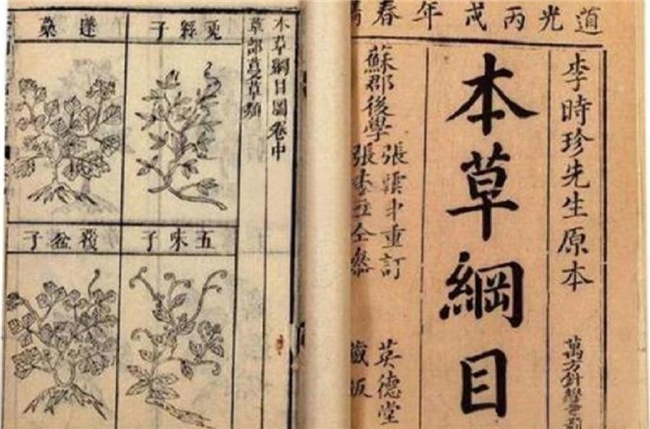 道光丙戌年春
李時珍先生原本
萬方針線
本草綱目
蘇郡後學
張雲中重訂
張仝參
英德堂
藏板
本草綱目圖卷中
草部蔓草類
兔絲子
蓬蘽
五味子
覆盆子